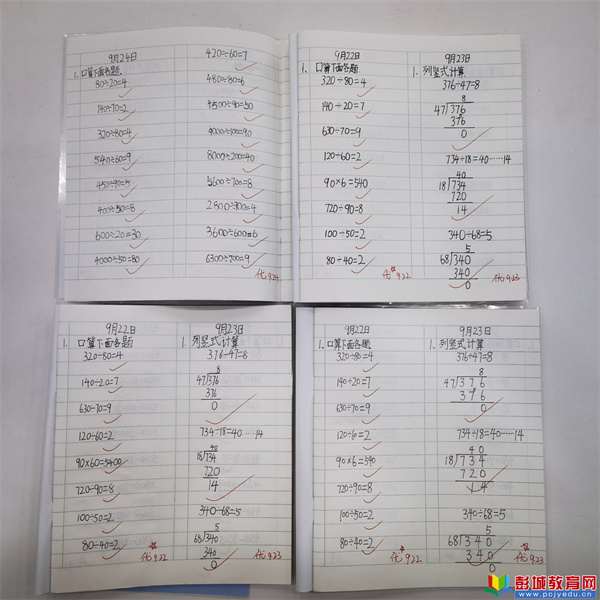 9月24日
1. 口算下面各题.
80÷20=4
140÷70=2
320÷80=4
540÷60=9
450÷90=5
400÷50=8
600÷20=30
4000÷50=80
420÷60=7
480÷80=6
4500÷90=50
8000÷200=40
5600÷700=8
2800÷700=4
3600÷600=6
6300÷700=9
优 924
9月22日
1. 口算下面各题
320÷80=4
140÷20=7
630÷70=9
120÷60=2
90×6=540
720÷90=8
100÷50=2
80÷40=2
优 922
9月23日
1. 列竖式计算
376÷47=8
8
47376
376
0
734÷18=40……14
40
18734
720
14
340÷68=5
5
68340
340
0
优 923
9月22日
1. 口算下面各题
320÷80=4
140÷20=7
630÷70=9
120÷60=2
90×60=5400
720÷90=8
100÷50=2
80÷40=2
优 922
9月23日
1. 列竖式计算
376÷47=8
8
47376
376
0
734÷18=40……14
40
18734
720
14
340÷68=5
5
68340
340
0
优 923
9月22日
1. 口算下面各题
320÷80=4
140÷20=7
630÷70=9
120÷60=2
90×6=540
720÷90=8
100÷50=2
80÷40=2
优 922
9月23日
1. 列竖式计算
376÷47=8
8
47376
376
0
734÷18=40……14
40
18734
720
14
340÷68=5
5
68340
340
0
优 923
彭城教育网
www.pcjyedu.cn